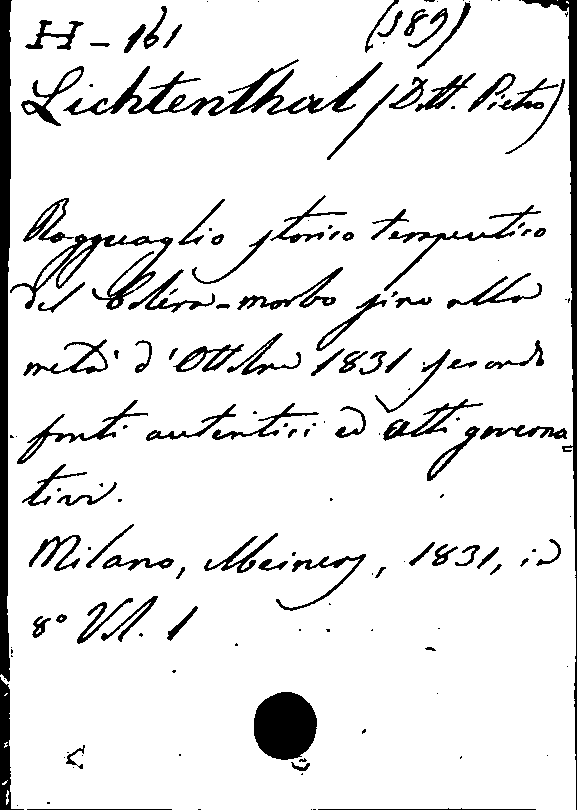 H - 161 (389)
Lichtenthal (Dott. Pietro)
Ragguaglio storico terapeutico
del Coléra-morbo fino alla
metà d'Ottobre 1831 secondo
fonti autentici ed atti governa=
tivi.
Milano, Meiners, 1831, in
8° Vol. 1